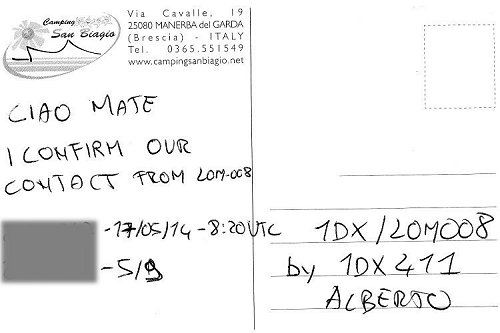 Camping
San Biagio
Via Cavalle, 19
25080 MANERBA del GARDA
(Brescia) - ITALY
Tel. 0365.551549
www.campingsanbiagio.net
CIAO MATE
I CONFIRM OUR
CONTACT FROM LOM-008
-17/05/14 - 8:20 UTC
-5/9
1DX/LOM008
by 1DX411
ALBERTO